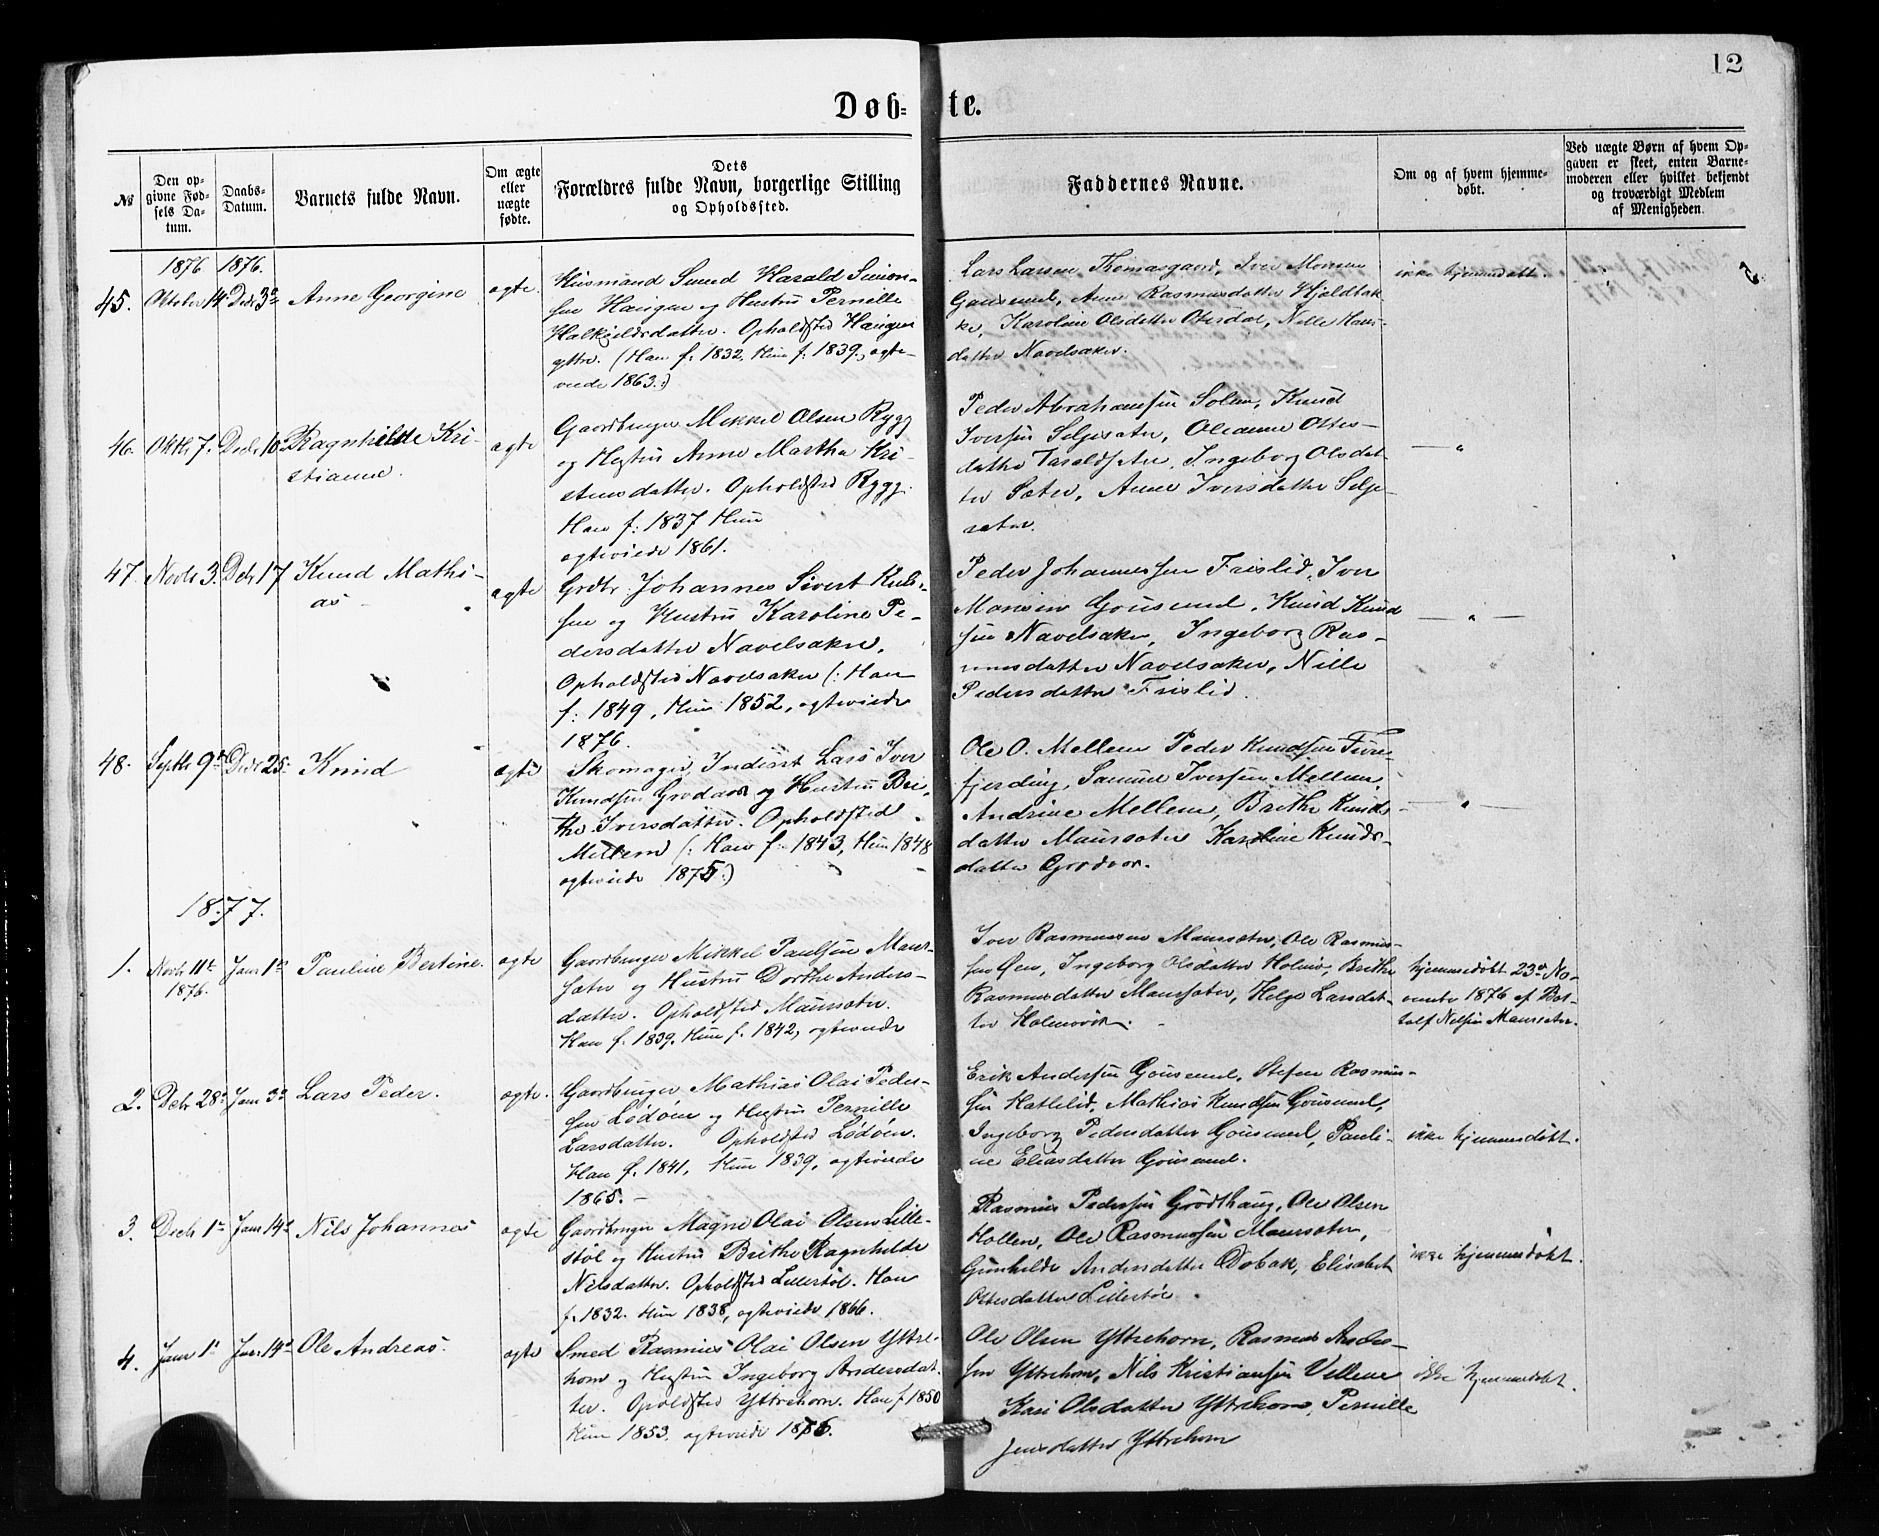 12
Døb= te.
№
Den op-
givne Fød-
sels Da-
tum.
Daabs-
Datum.
Barnets fulde Navn.
Om ægte
eller
uægte
fødte.
Dets
Forældres fulde Navn, borgerlige Stilling
og Opholdssted.
Faddernes Navne.
Om og af hvem hjemme-
døbt.
Ved uægte Børn af hvem Op-
gaven er skeet, enten Barne-
moderen eller hvilket bekjendt
og troværdigt Medlem
af Menigheden.
1876 1876.
45. Oktober 14 Decbr 3d Anne Georgine ægte.
Husmand Smed Harald Simon-
sen Haugen og Hustru Pernille
Halkjeldsdatter. Opholdssted Haugen
yttre. (Han f. 1832, Hun f. 1839, ægte-
viede 1863.)
Lars Larsen Thomasgaard, Iver Monsen
Gausemel, Anne Rasmusdatter Hjeldbak
ke, Karoline Olsdatter Otterdal, Nille Hans-
datter Navelsaker.
ikke hjemmedøbt.
46. Oktbr 7. Decbr 10 Ragnhilde Kri-
stianne.
ægte
Gaardbruger Mikkel Olsen Rygg
og Hustru Anne Martha Kri-
stensdatter. Opholdssted Rygg.
Han f: 1837 Hun
ægteviede 1861.
Peder Abrahamsen Solem, Knud
Iversen Seljesæter, Oleanne Ottes-
datter Taraldsæter, Ingeborg Olsdat-
ter Sæter, Anne Iversdatter Selje-
sæter.
— " —
47. Novbr 3. Decbr 17 Knud Mathi-
as
ægte
Grdbr. Johannes Sivert Knud-
sen og Hustru Karoline Pe-
dersdatter Navelsaker,
Opholdssted Navelsaker (: Han
f: 1849, Hun 1852, ægteviede
1876.
Peder Johannessen Frislid, Iver
Monsen Gausemel, Knud Knud
sen Navelsaker, Ingeborg Ras-
musdatter Navelsaker, Nille
Pedersdatter Frislid.
— " —
48. Septbr 9de Decbr 25. Knud ægte
Skomager, Inderst Lars Iver
Knudsen Grodaas og Hustru Bri-
the Iversdatter. Opholdssted
Mellem (: Han f. 1843, Hun 1848
ægteviede 1875.)
Ole O. Mellem Peder Knudsen Fure-
fjerding, Samuel Iversen Mellem,
Andrine Mellem, Brithe Knuds
datter Maursæter Karoline Knuds-
datter Grodaas.
— " —
1877.
1. Novbr 11te
1876. Janr 1ste Pauline Bertine. ægte
Gaardbruger Mikkel Paulsen Maur-
sæter og Hustru Dorthe Anders-
datter. Opholdssted Maursæter.
Han f. 1839. Hun f. 1842, ægteviede
Iver Rasmussen Maursæter, Ole Rasmus-
sen Øen, Ingeborg Olsdatter Holmø, Brithe
Rasmusdatter Maursæter, Helge Larsdat-
ter Holmøvik.
hjemmedøbt 23de No-
vember 1876 af Bot-
talf Nilsen Maursæter.
2. Decbr 28de Janr 3de Lars Peder. ægte.
Gaardbruger Mathias Olai Peder-
sen Lødøen og Hustru Pernille
Larsdatter. Opholdssted Lødøen.
Han f. 1841, Hun 1839, ægteviede
1865. —
Erik Andersen Gausemel, Stefen Rasmus-
sen Hatlelid, Mathias Knudsen Gausemel,
Ingeborg Pedersdatter Gausemel, Pauli-
ne Eliasdatter Gausemel.
ikke hjemmedøbt.
3. Decbr 1ste Janr 14de Nils Johannes ægte
Gaardbruger Magne Olai Olsen Lille-
støl og Hustru Brithe Ragnhilde
Nilsdatter. Opholdssted Lillestøl. Han
f. 1832. Hun 1838, ægteviede 1866.
Rasmus Pedersen Grødthaug, Ole Olsen
Hollen, Ole Rasmussen Maursæter,
Gunhilde Andersdatter Dobak, Elisabet
Ottesdatter Lillestøl.
ikke hjemmedøbt.
4. Janr 1ste Janr. 14de Ole Andreas. ægte
Smed Rasmus Olai Olsen Yttre-
horn og Hustru Ingeborg Andersdat-
ter. Opholdssted Yttrehorn. Han f. 1850
Hun 1853, ægteviede 1876.
Ole Olsen Yttrehorn, Rasmus Anders-
sen Yttrehorn, Nils Kristiansen Vellene
Kari Olsdatter Yttrehorn, Pernille
Jensdatter Yttrehorn
ikke hjemmedøbt.